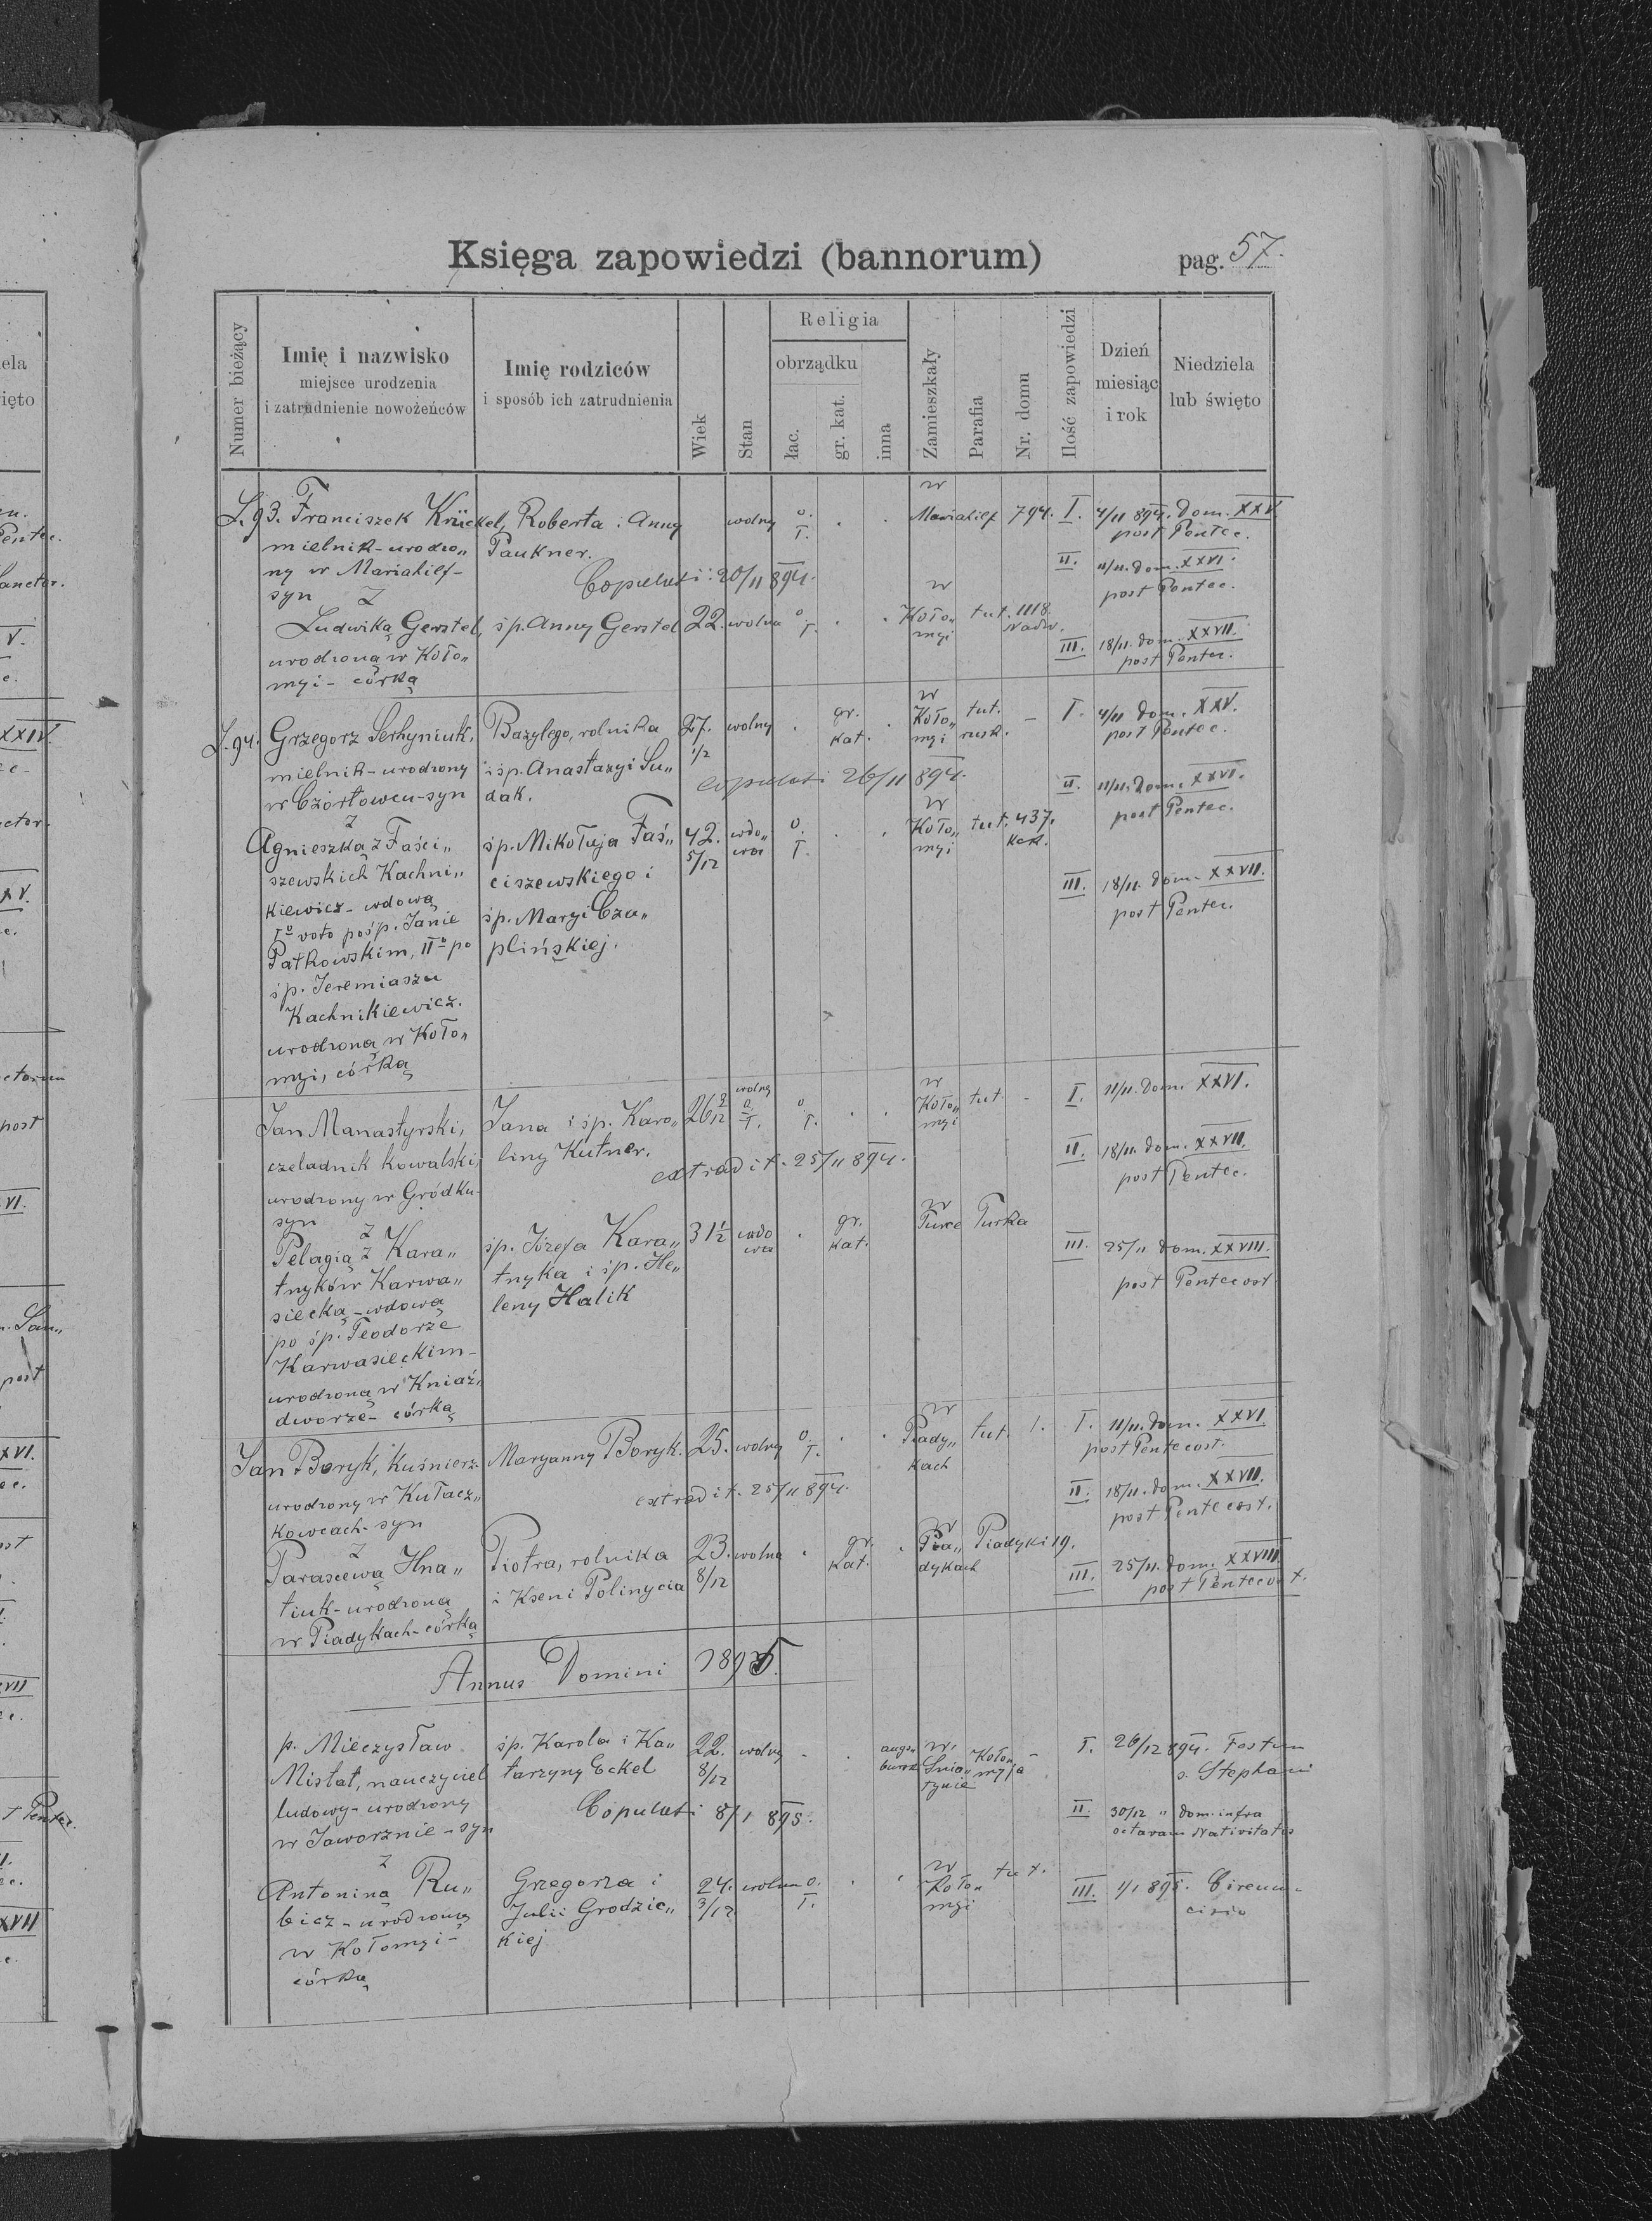 Księga zapowiedzi (bannorum)
pag. 57.
Numer bieżący
Imię i nazwisko
miejsce urodzenia
i zatrudnienie nowożeńców
Imię rodziców
i sposób ich zatrudnienia
Wiek
Stan
Religia
obrządku
łac.
gr. kat.
inna
Zamieszkały
Parafia
Nr. domu
Ilość zapowiedzi
Dzień
miesiąc
i rok
Niedziela
lub święto
L. 93. Franciszek Krückel, Roberta i Anny wolny o. Ł. . . w Mariahilf 794. I. 4/11 894. Dom. XXV.
mielnik - urodzo„ Paukner. post Pentec.
ny w Mariahilf - Copulati: 20/11 894. II. 11/11. dom. XXVI.
syn post Pentec.
z
Ludwiką Gerstel, śp. Anny Gerstel 22. wolna o Ł. . . w Koło„ tut. 1118.
urodzoną w Koło„ myi Nadw. III. 18/11. dom. XXVII.
myi - córką post Pentec.
L. 94. Grzegorz Serhyniuk, Bazylego, rolnika 27. wolny . gr. . w Koło„ tut. - I. 4/11 dom. XXV.
mielnik - urodzony i śp. Anastazyi Su„ 1/2 kat. myi rusk. post Pentec.
w Czortowcu - syn dak. copulati 26/11 894. II. 11/11. dom. XXVI.
z post Pentec.
Agnieszką z Faści„ śp. Mikołaja Faś„ 42. wdo„ o. . . w Koło„ tut. 437.
szewskich Kachni„ ciszewskiego i 5/12 wa Ł. myi
kiewicz - wdową śp. Maryi Cza„ III. 18/11. dom. XXVII.
Io voto po śp. Janie plińskiej. post Pentec.
Patkowskim, IIo po
śp. Jeremiaszu
Kachnikiewicz.
urodzoną w Koło„
myi, córką
Jan Manastyrski, Jana i śp. Karo„ 26 2/12 wolny o. Ł. . . w Koło„ tut. - I. 11/11. dom. XXVI.
czeladnik kowalski, liny Kutner. myi
urodzony w Gródku - extradit. 25/11 894. II. 18/11. dom. XXVII.
syn post Pentec.
z
Pelagią z Kara„ śp. Józefa Kara„ 31 1/2 wdo . gr. w Turce Turka
tnyków Karwa„ tnyka i śp. He„ wa kat. III. 25/11 dom. XXVIII.
siecką - wdową leny Halik post Pentecost.
po śp. Teodorze
Karwasieckim -
urodzoną w Kniaź„
dworze - córką
Jan Boryk, Kuśnierz - Maryanny Boryk. 25. wolny o. Ł. . . w Piady„ tut. 1. I. 11/11. dom. XXVI.
urodzony w Kułacz„ kach post Pentecost.
kowcach - syn extradit. 25/11 894. II. 18/11. dom. XXVII.
z post Pentecost.
Parascewą Hna„ Piotra, rolnika 23. wolna . gr. . w Pia„ Piadyki 19.
tiuk - urodzoną i Kseni Polinycia 8/12 kat. dykach III. 25/11. dom. XXVIII.
w Piadykach - córką post Pentecost.
Annus Domini 1895.
p. Mieczysław śp. Karola i Ka„ 22. wolny - . augs„ w Koło„ - I. 26/12 894. Festum
Mistat, nauczyciel tarzyny Eckel 8/12 bursk. Śnia„ myja s. Stephani
ludowy - urodzony tynie II. 30/12 " dom. infra
w Jaworznie - syn Copulati 8/1 895. octavam Nativitatis
z
Antoniną Ru„ Grzegorza i 24. wolna o. . . w Koło„ tut. III. 1/1 895. Circum-
bicz - urodzoną Julii Grodzic„ 3/12 Ł. myi cisio
w Kołomyi - kiej
córką